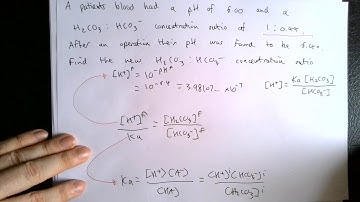 A patients blood had a pH of 6.00 and a
H₂CO₃ : HCO₃⁻ concentration ratio of 1 : 0.44.
After an operation their pH was found to be 6.40.
Find the new H₂CO₃ : HCO₃⁻ concentration ratio
[H⁺]ᶠ = 10^-pHᶠ
= 10^-6.4 = 3.98107... × 10⁻⁷
[H⁺] = Ka [H₂CO₃] / [HCO₃⁻]
[H⁺]ᶠ / Ka = [H₂CO₃]ᶠ / [HCO₃⁻]ᶠ
Ka = [H⁺][A⁻] / [HA] = [H⁺]ⁱ[HCO₃⁻]ⁱ / [H₂CO₃]ⁱ